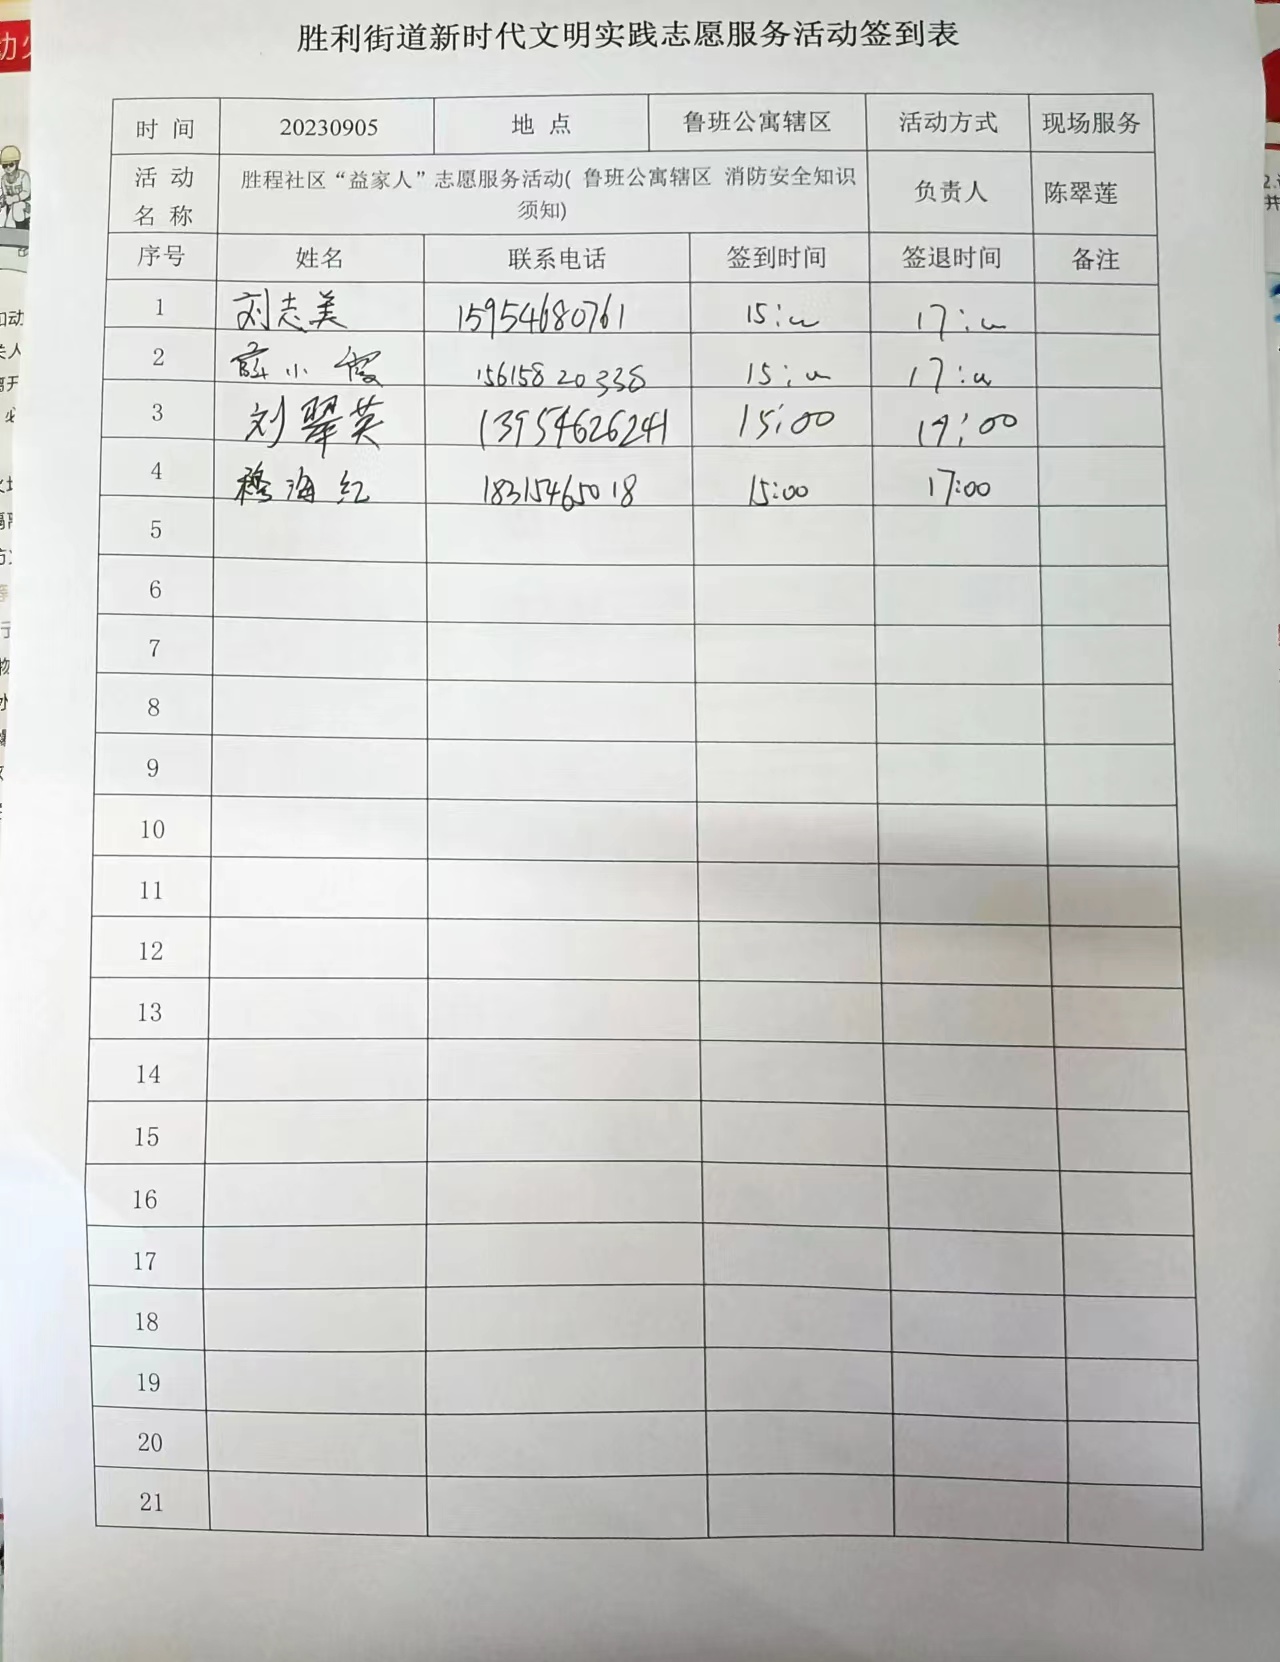 胜利街道新时代文明实践志愿服务活动签到表
时 间 20230905 地 点 鲁班公寓辖区 活动方式 现场服务
活 动 名 称 胜程社区“益家人”志愿服务活动( 鲁班公寓辖区 消防安全知识 负责人 陈翠莲
须知)
序号 姓名 联系电话 签到时间 签退时间 备注
1 刘志美 15954680761 15:00 17:00
2 薛小霞 15615820338 15:00 17:00
3 刘翠英 13954626241 15:00 17:00
4 穆海红 18315465018 15:00 17:00
5
6
7
8
9
10
11
12
13
14
15
16
17
18
19
20
21